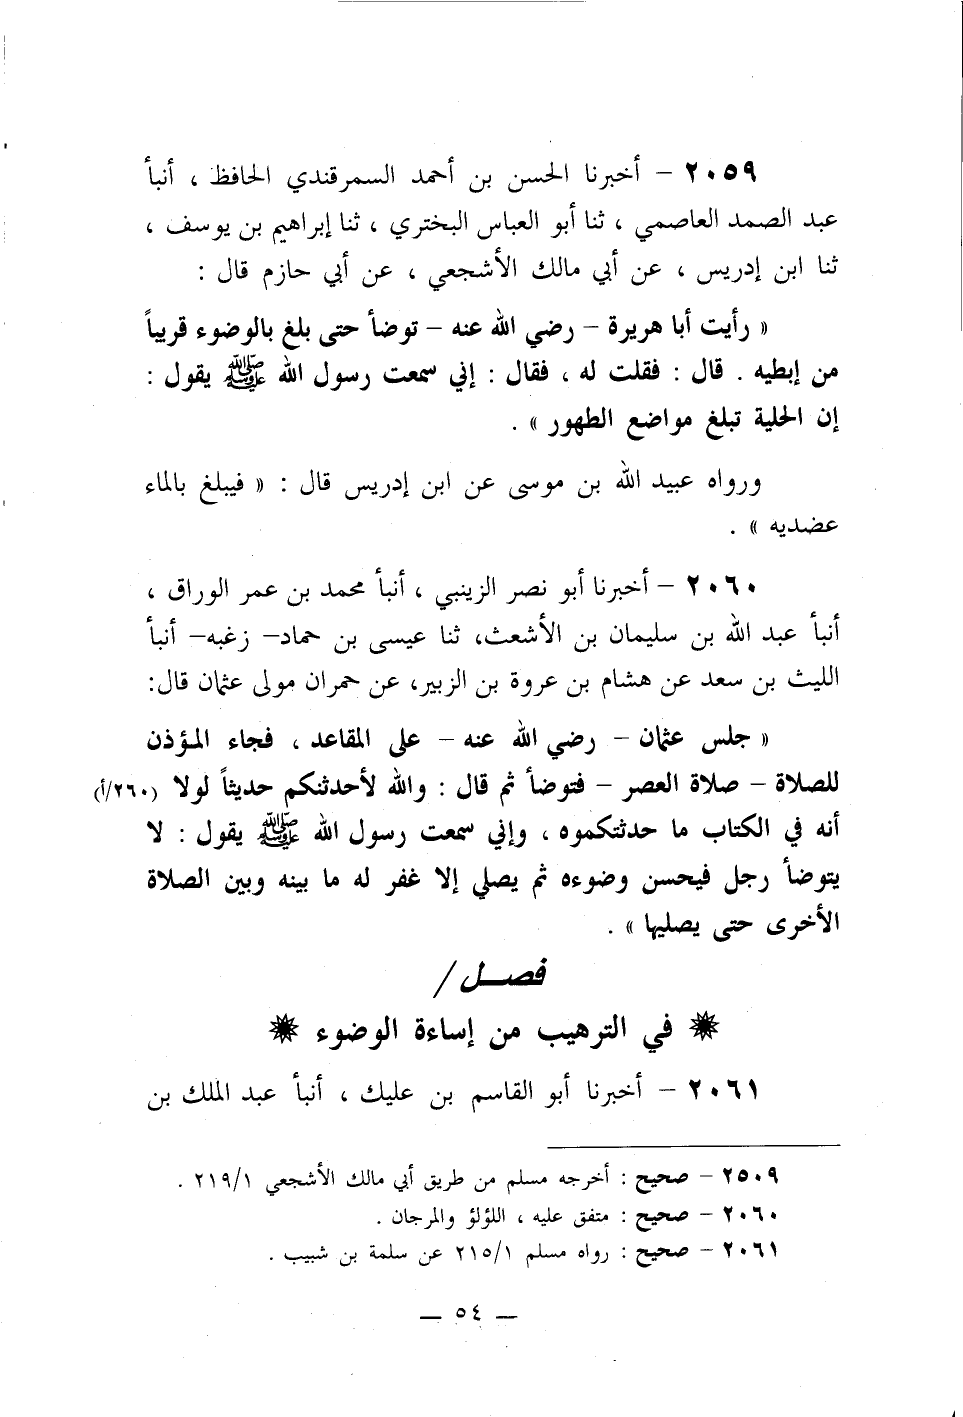 ٢٠٥٩ – أخبرنا الحسن بن أحمد السمرقندي الحافظ ، أنبأ
عبد الصمد العاصمي ، ثنا أبو العباس البختري ، ثنا إبراهيم بن يوسف ،
ثنا ابن إدريس ، عن أبي مالك الأشجعي ، عن أبي حازم قال :
« رأيت أبا هريرة – رضي الله عنه – توضأ حتى بلغ بالوضوء قريباً
من إبطيه . قال : فقلت له ، فقال : إني سمعت رسول الله ﷺ يقول :
إن الحلية تبلغ مواضع الطهور » .
ورواه عبيد الله بن موسى عن ابن إدريس قال : « فيبلغ بالماء
عضديه » .
٢٠٦٠ – أخبرنا أبو نصر الزينبي ، أنبأ محمد بن عمر الوراق ،
أنبأ عبد الله بن سليمان بن الأشعث، ثنا عيسى بن حماد– زغبه– أنبأ
الليث بن سعد عن هشام بن عروة بن الزبير، عن حمران مولى عثمان قال:
« جلس عثمان – رضي الله عنه – على المقاعد ، فجاء المؤذن
للصلاة – صلاة العصر – فتوضأ ثم قال : والله لأحدثنكم حديثاً لولا (٢٦٠/أ)
أنه في الكتاب ما حدثتكموه ، وإني سمعت رسول الله ﷺ يقول : لا
يتوضأ رجل فيحسن وضوءه ثم يصلي إلا غفر له ما بينه وبين الصلاة
الأخرى حتى يصليها » .
فصــل /
في الترهيب من إساءة الوضوء
٢٠٦١ – أخبرنا أبو القاسم بن عليك ، أنبأ عبد الملك بن
٢٥٠٩ – صحيح : أخرجه مسلم من طريق أبي مالك الأشجعي ٢١٩/١ .
٢٠٦٠ – صحيح : متفق عليه ، اللؤلؤ والمرجان .
٢٠٦١ – صحيح : رواه مسلم ٢١٥/١ عن سلمة بن شبيب .
– ٥٤ –